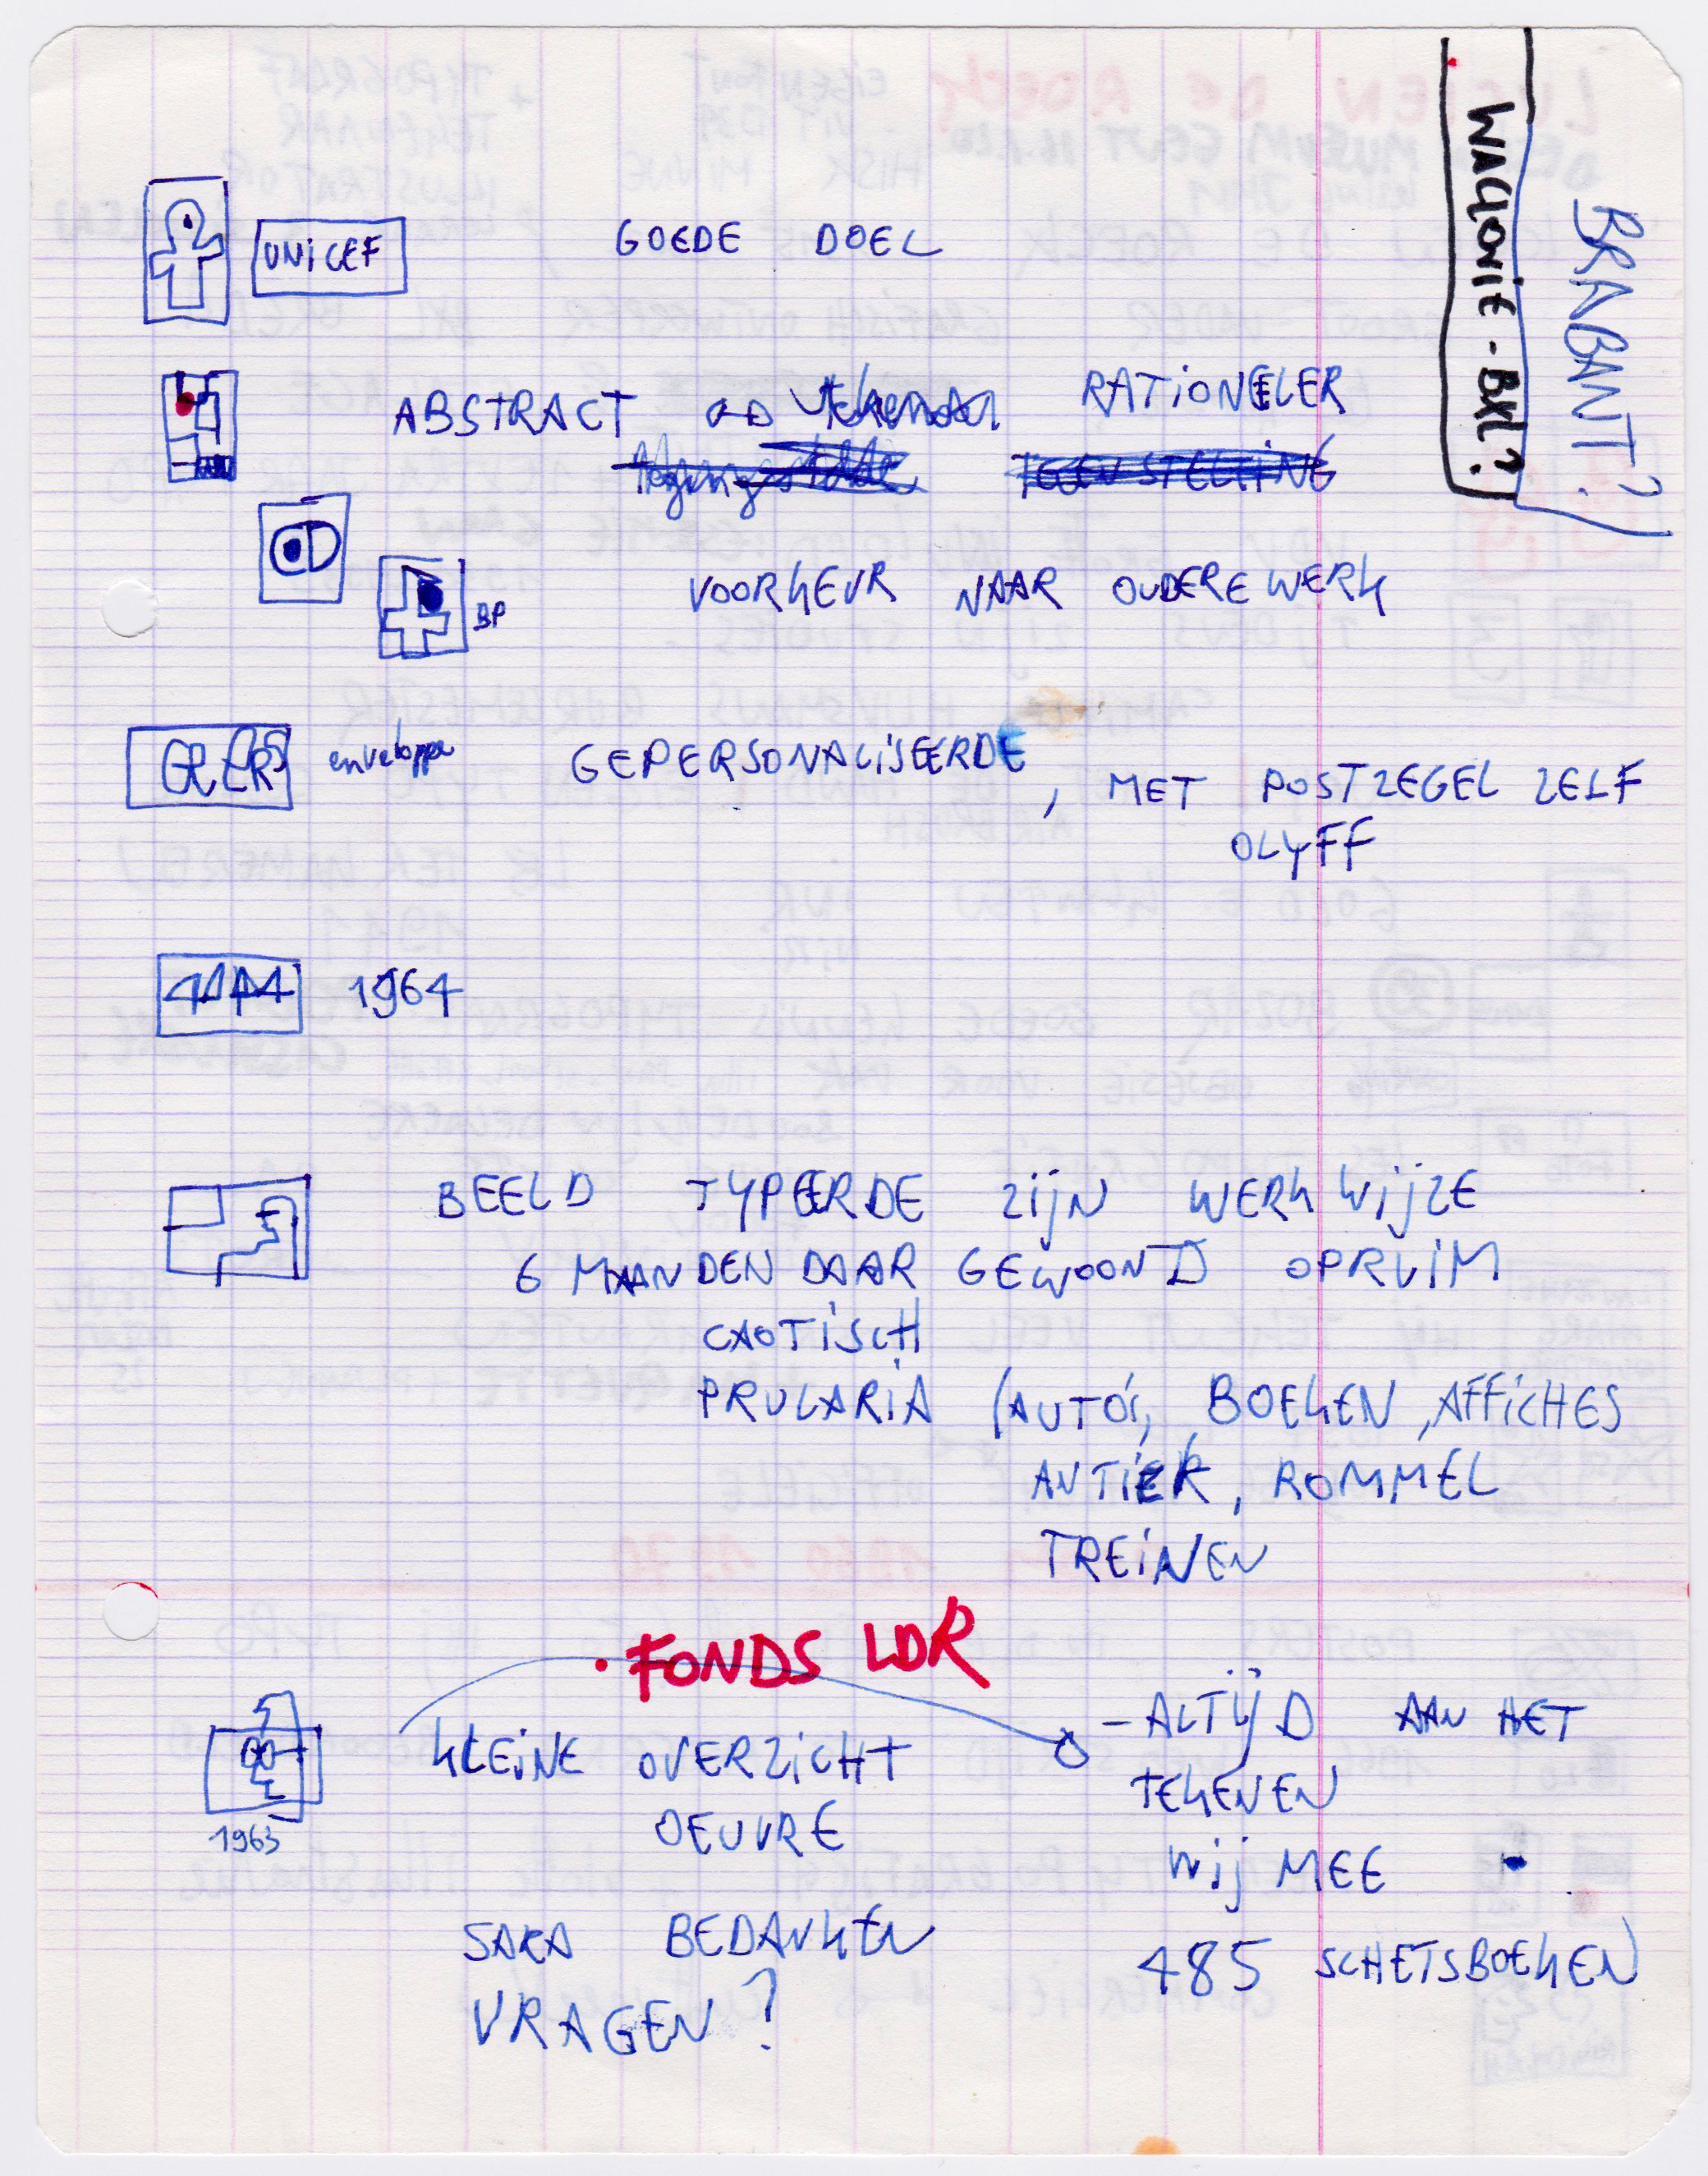 BRABANT?
WALLONIE - BXL?
UNICEF
GOEDE DOEL
ABSTRACT
RATIONELER
TEGENSTELLING
VOORKEUR NAAR OUDERE WERK
BP
enveloppe
GEPERSONALISEERDE, MET POSTZEGEL ZELF
OLYFF
1964
BEELD TYPEERDE ZIJN WERKWIJZE
6 MAANDEN DAAR GEWOOND OPRUIM
CAOTISCH
PRULARIA (AUTO's, BOEKEN, AFFICHES
ANTIEK, ROMMEL
TREINEN
• FONDS LDR
1963
KLEINE OVERZICHT
OEUVRE
- ALTIJD AAN HET
TEKENEN
WIJ MEE
485 SCHETSBOEKEN
SARA BEDANKEN
VRAGEN?